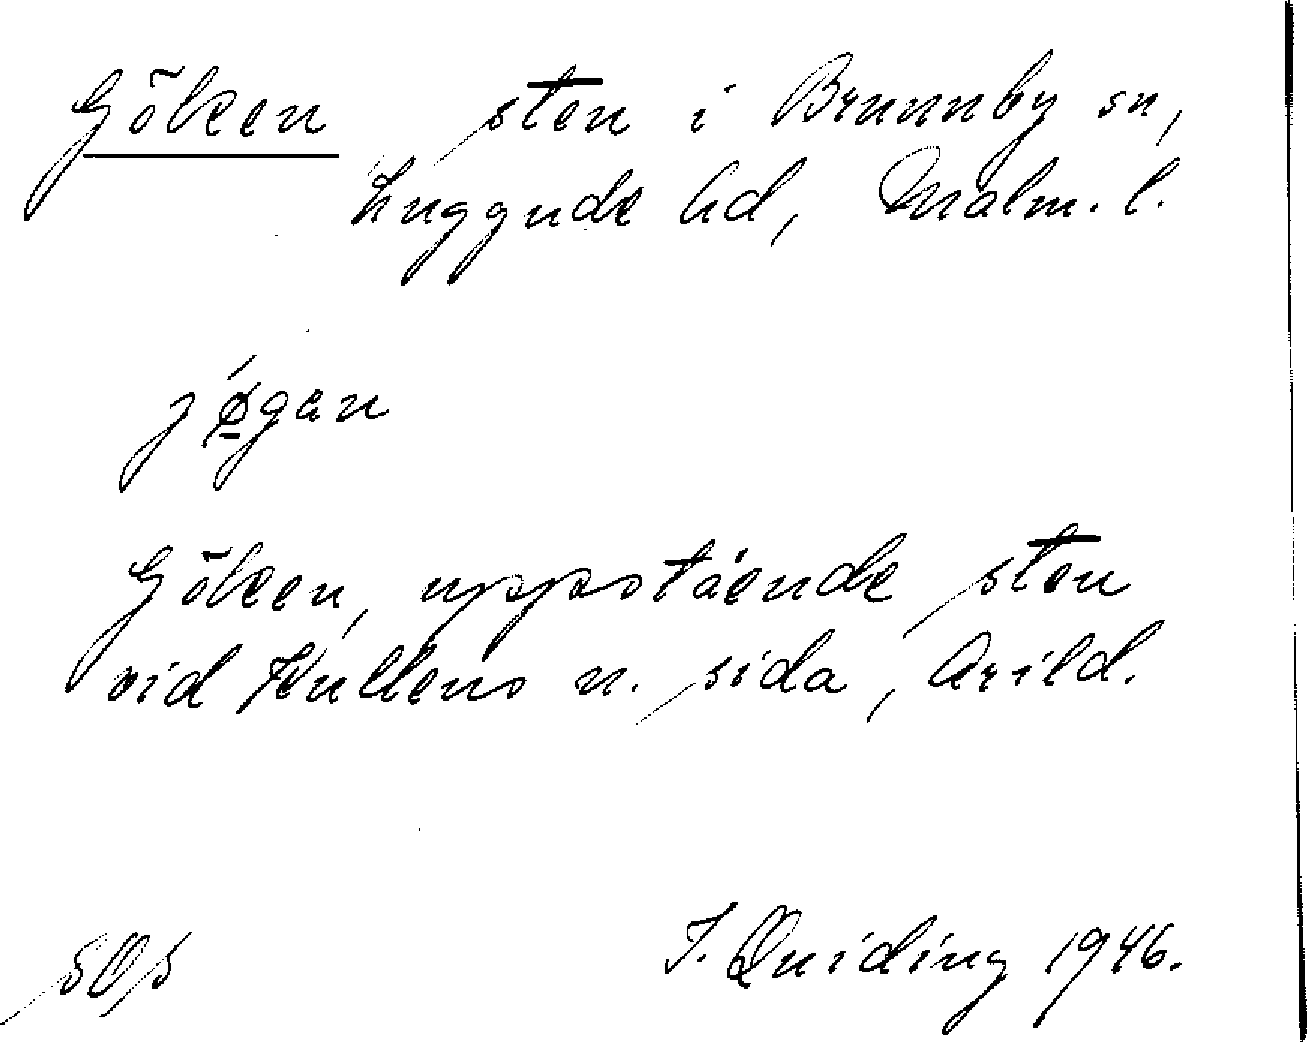 Göken sten i Brunnby sn,
Luggude hd, Malm. l.
jǿ̱gan
Göken, uppstående sten
vid Kullens n. sida, Arild.
I. Quiding 1946.